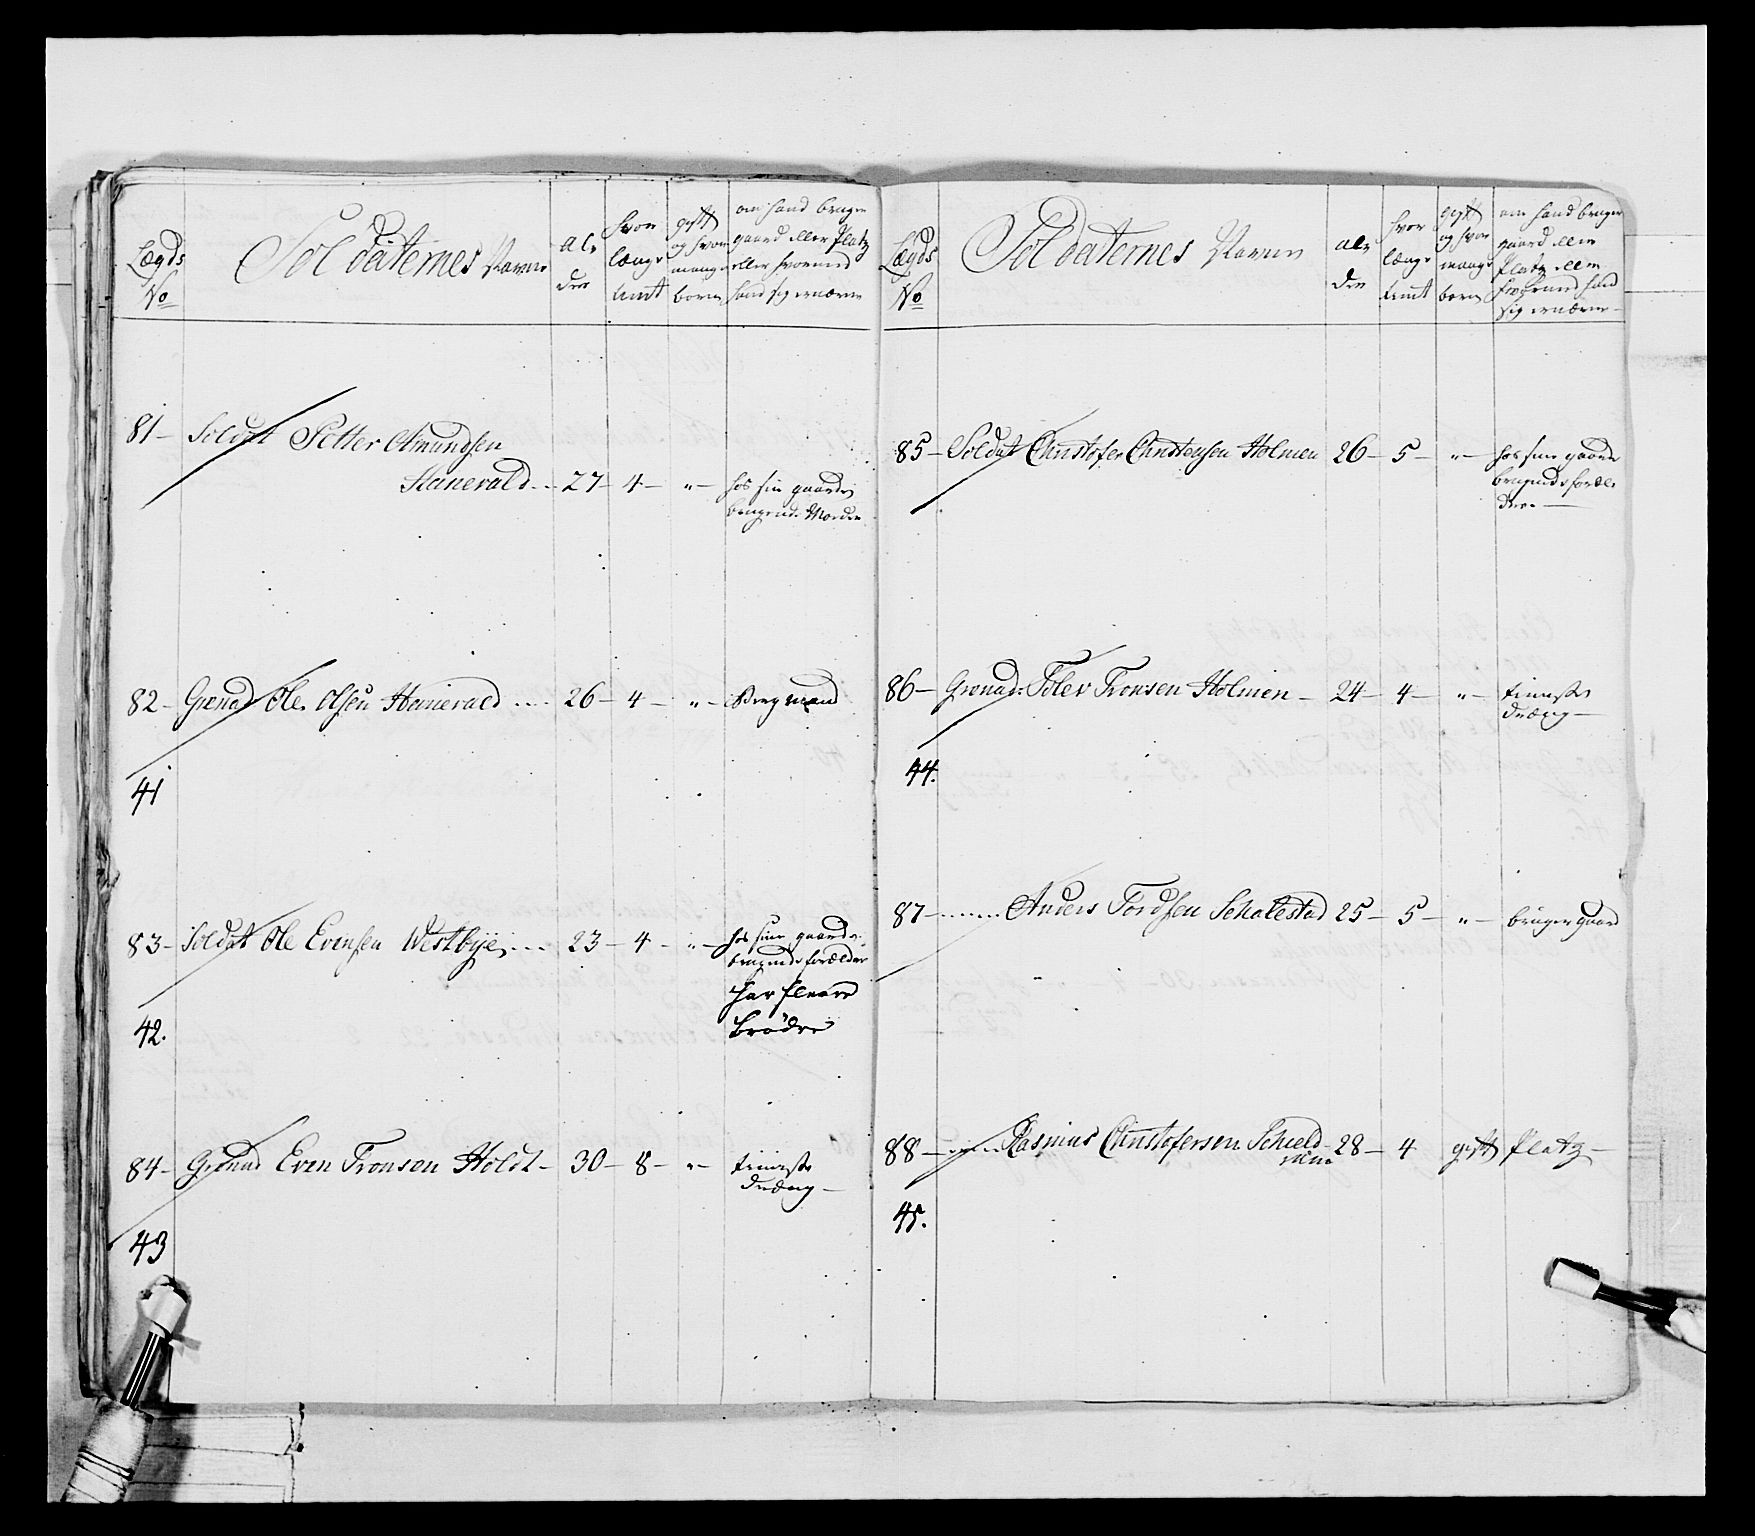 Lægds
No
Soldaternes Navne
Al-
der
hvor
længe
tient
gift
og hvor
mange
børn
om hand bruger
gaard eller Platz
eller hvormed
hand sig ernærer
81- Soldat Petter Amundsen
Hanevald - 27- 4- "- hos sin gaard
brugende Moder
82- Grenad Ole Olsen Hanevald .... 26- 4- "- Bergmand
41
83- Soldat Ole Evensen Westbye .... 23- 4- "- hos sine gaard
brugende forældre
har fleere
brødre
42.
84- Grenad Even Tronsen Holdt- 30- 8- "- tieneste
dræng-
43
Lægds
No
Soldaternes Navne
Al-
der
hvor
længe
tient
gift
og hvor
mange
børn
om hand bruger
gaard eller
Platz eller
hvormed hand
sig ernærer-
85- Soldat Christofer Christensen Holmen 26- 5- "- hos sine gaard
brugende foræl-
dre-
86- Grenad: Tolev Tronsen Holmen- 24- 4- "- tieneste
dræng-
44.
87- ....... Anders Tordsen Schalestad 25- 5- "- bruger gaard
88- ..... Rasmus Christofersen Schield- 28- 4 gift Platz-
45.